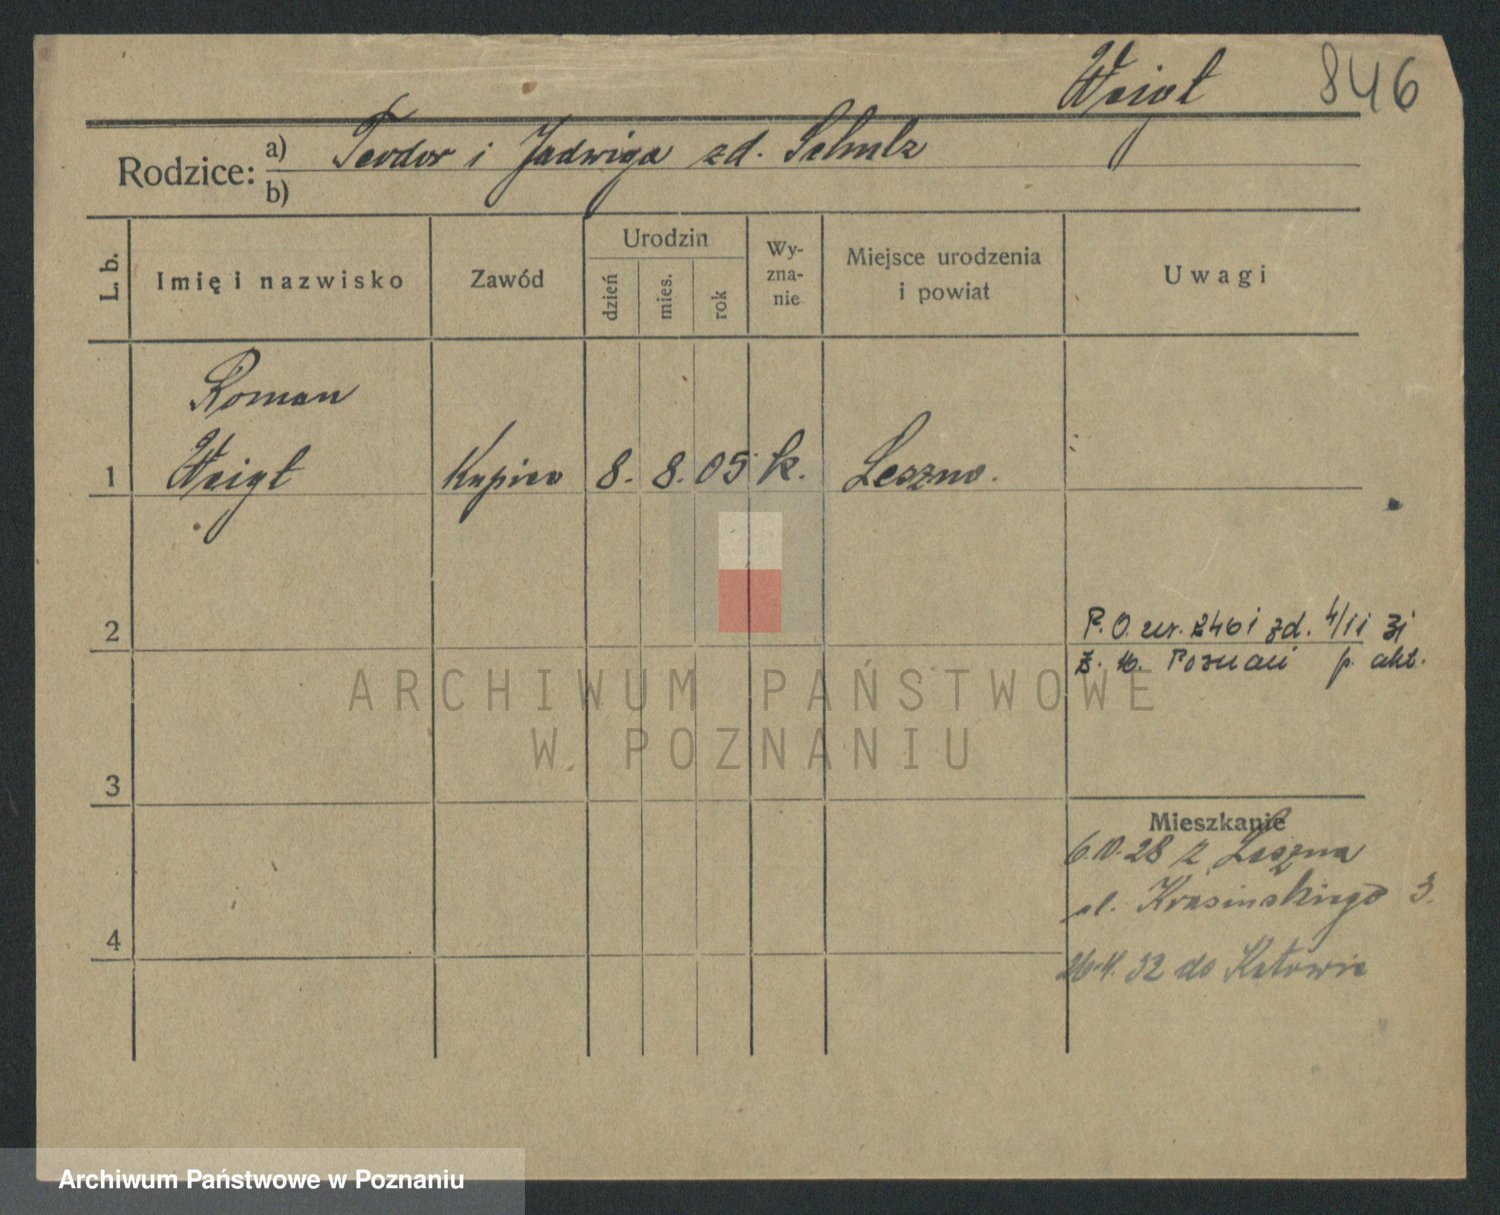 Weigt 846
Rodzice: a) Teodor i Jadwiga zd. Schulz
b)
L. b. Imię i nazwisko Zawód Urodzin dzień mies. rok Wyznanie Miejsce urodzenia i powiat Uwagi
Roman
1 Weigt Kupiec 8. 8. 05 k. Leszno.
2 P. O. ser. 2461 zd. 4/II 31
z. m. Poznań p. akt.
3
Mieszkanie
6.10.28 z Leszna
ul. Krasińskiego 3.
4
26.4.32 do Katowic
ARCHIWUM PAŃSTWOWE
W POZNANIU
Archiwum Państwowe w Poznaniu